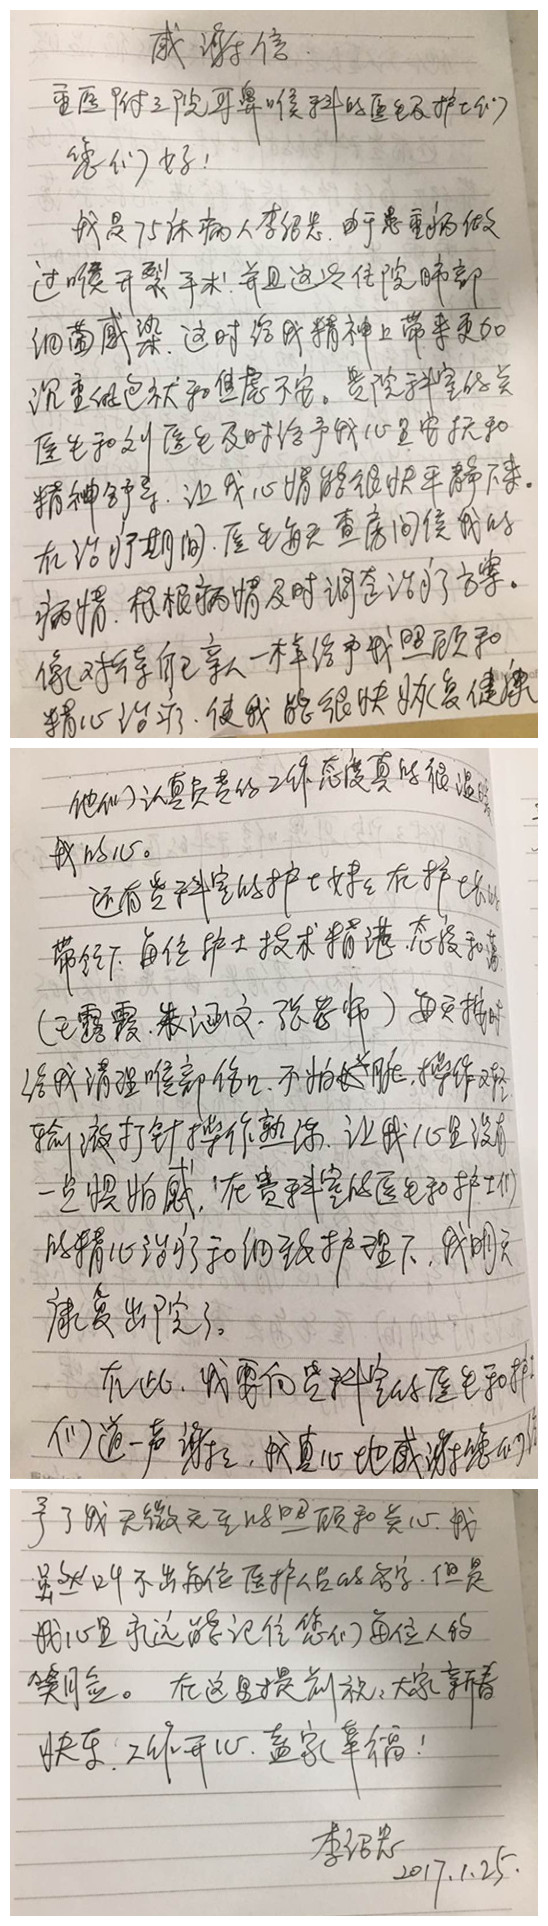 感谢信.
重医附三院耳鼻喉科的医生及护士们
您们好!
我是75床病人李绍忠.由于患重病做
过喉开裂手术.并且这次住院肺部
细菌感染.这时给我精神上带来更加
沉重的包袱和焦虑不安。贵院科室的吴
医生和刘医生及时给予我心里安抚和
精神舒导.让我心情能很快平静下来。
在治疗期间.医生每天查房问候我的
病情.根根病情及时调查治疗方案。
像对待自己亲人一样给予我照顾和
精心治疗.使我能很快恢复健康
他们认真负责的工作态度真的很温暖
我的心。
还有贵科室的护士妹妹在护士长的
带领下.每位护士技术精湛.态度和蔼
(王露霞.朱涵文.张 ) 每天按时
给我清理喉部伤口.不怕脏.操作又轻
输液打针操作熟练.让我心里没有
一点惧怕感,在贵科室的医生和护士们
的精心治疗和细致护理下,我明天
康复出院了。
在此.我要向贵科室的医生和护士
们道一声谢谢,我真心地感谢您们给
予了我无微无至的照顾和关心.我
虽然叫不出每位医护人员的名字.但是
我心里永远能记住您们每位人的
笑脸。在这里提前祝:大家新春
快乐.工作开心.盍家幸福!
李绍忠
2017.1.25.